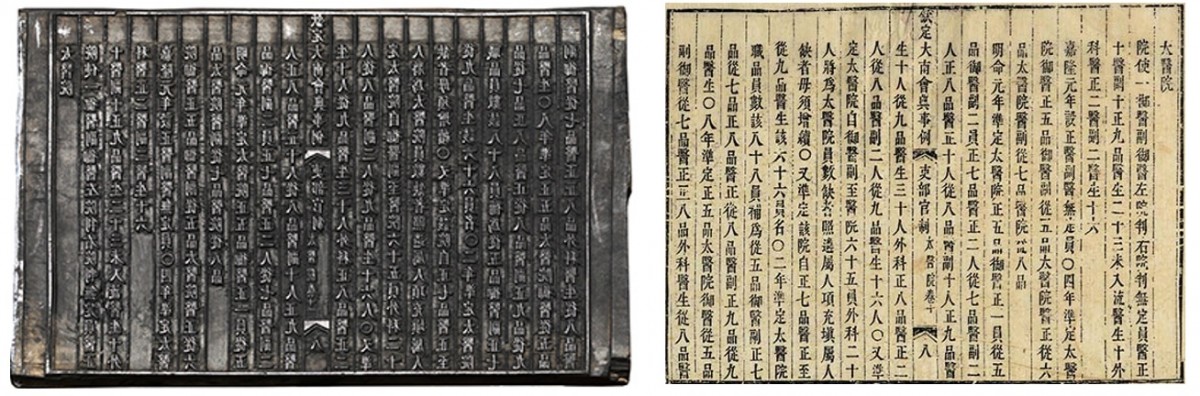 太醫院
院使一御醫副御醫左院判右院判無定員醫正
十醫副十正九品醫生二十三未入流醫生十外
科醫正二醫副二醫生十六
嘉隆元年設正醫副醫無定員〇四年準定太醫
院御醫正五品御醫副從五品太醫院醫正從六
品太醫院醫副從七品醫院從八品
明命元年準定太醫院正五品御醫正一員從五
品御醫副二員正七品醫正二人從七品醫副二
人正八品醫正十人從八品醫副十人正九品醫
欽定大南會典事例 吏部官制 太醫院卷十 八
生十人從九品醫生三十人外科正八品醫正二
人從八品醫副二人從九品醫生十六人〇又準
定太醫院自御醫副至醫院六十五員外科二十
人將爲太醫院員數缺者照遴屬人項充塡屬人
缺者毋須增續〇又準定該院自正七品醫正至
從九品醫生該六十六員名〇二年準定太醫院
職品員數該八十八員補爲從五品御醫副正七
品從七品正八品醫正從八品醫副正九品從九
品醫生〇八年準定正五品太醫院御醫從五品
副御醫從七品醫正正八品外科醫生從八品醫